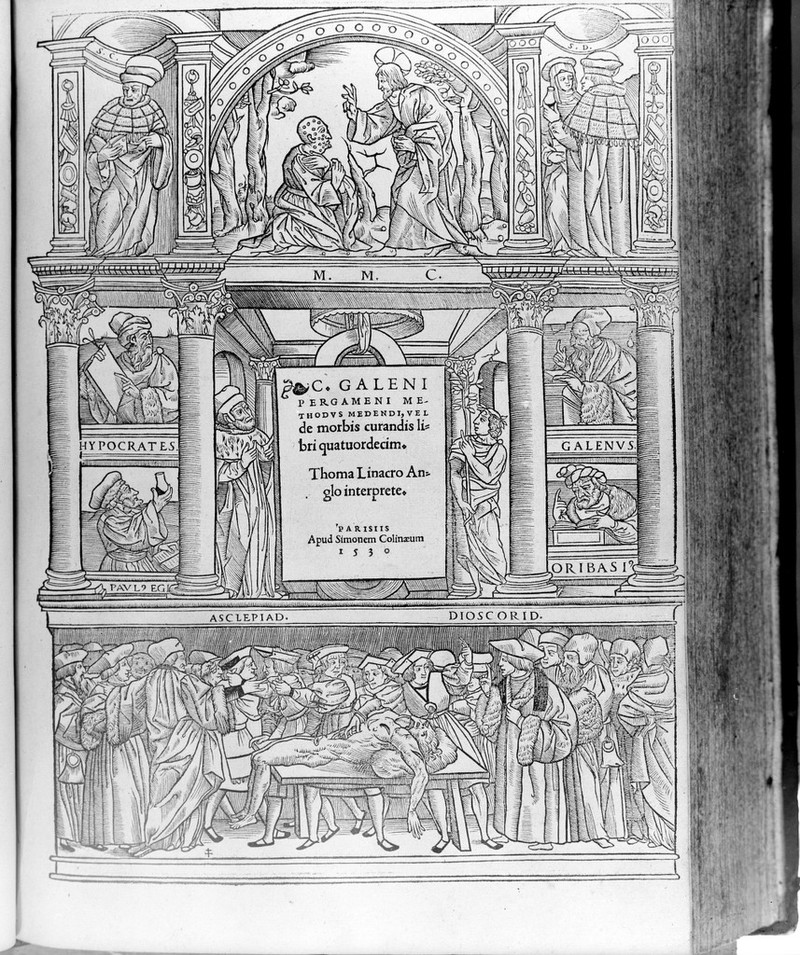 S. C.
S. D.
M. M. C.
C. GALENI
PERGAMENI ME-
THODVS MEDENDI, VEL
de morbis curandis li-
bri quatuordecim.
Thoma Linacro An-
glo interprete.
PARISIIS
Apud Simonem Colinæum
1530
HYPOCRATES
GALENVS
PAVLꝰ EGI
ORIBASIꝰ
ASCLEPIAD.
DIOSCORID.